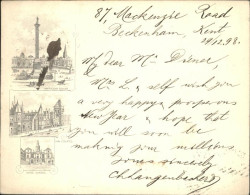 87, Mackenzie Road
Beckenham, Kent
29/12.98.
My dear Mr. Diener,
Mrs L. & self wish you
a very happy & prosperous
New Year & hope that
you will soon be
making your millions
yours sincerely